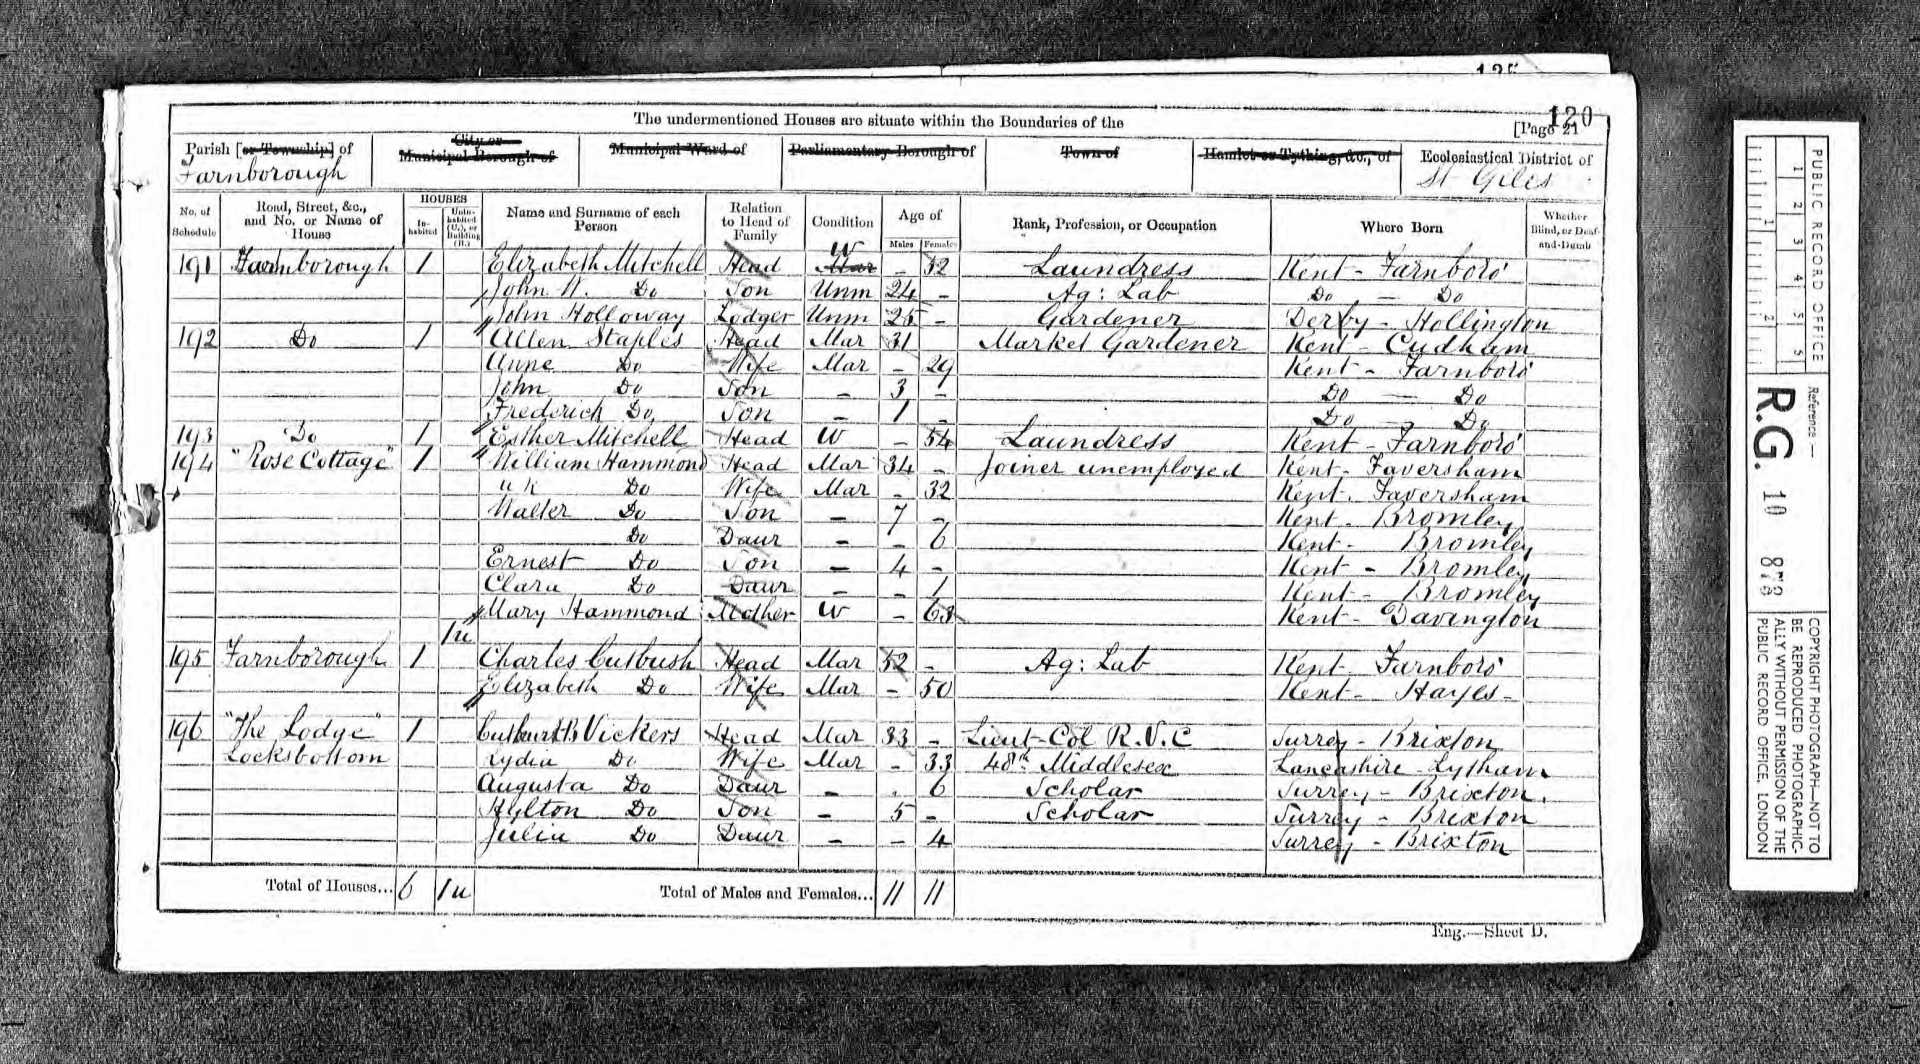 120
The undermentioned Houses are situate within the Boundaries of the
[Page 21
Parish [or Township] of
Farnborough
City or
Municipal Borough of
Municipal Ward of
Parliamentary Borough of
Town of
Hamlet or Tything, &c., of
Ecclesiastical District of
St Giles
No. of Schedule
Road, Street, &c., and No. or Name of House
HOUSES
In-habited
Unin-habited (U.), or Building (B.)
Name and Surname of each Person
Relation to Head of Family
Condition
Age of
Males
Females
Rank, Profession, or Occupation
Where Born
Whether Blind, or Deaf-and-Dumb
191 Farnborough 1 Elizabeth Mitchell Head Mar W - 52 Laundress Kent - Farnboro'
John W. Do Son Unm 24 - Ag: Lab Do - Do
John Holloway Lodger Unm 25 - Gardener Derby - Hollington
192 Do 1 Allen Staples Head Mar 31 Market Gardener Kent - Cudham
Anne Do Wife Mar - 29 Kent - Farnboro'
John Do Son - 3 - Do - Do
Frederick Do Son - 1 - Do - Do
193 Do 1 Esther Mitchell Head W - 54 Laundress Kent - Farnboro'
194 "Rose Cottage" 1 William Hammond Head Mar 34 - Joiner unemployed Kent - Faversham
u k Do Wife Mar - 32 Kent - Faversham
Walter Do Son - 7 - Kent - Bromley
Do Daur - - 6 Kent - Bromley
Ernest Do Son - 4 - Kent - Bromley
Clara Do Daur - - 1 Kent - Bromley
Mary Hammond Mother W - 63 Kent - Davington
1u
195 Farnborough 1 Charles Cutbush Head Mar 52 - Ag: Lab Kent Farnboro'
Elizabeth Do Wife Mar - 50 Kent - Hayes
196 "The Lodge" 1 Cuthburt B Vickers Head Mar 33 - Lieut-Col R.V.C Surrey - Brixton
Locksbottom Lydia Do Wife Mar - 33 48th Middlesex Lancashire - Lytham
Augusta Do Daur - - 6 Scholar Surrey - Brixton
Hylton Do Son - 5 - Scholar Surrey - Brixton
Julia Do Daur - - 4 Surrey - Brixton
Total of Houses... 6 1u Total of Males and Females... 11 11
Eng.—Sheet D.
PUBLIC RECORD OFFICE
1 2 3 4 5 5
1 2
Reference:—
R.G. 10 873
COPYRIGHT PHOTOGRAPH—NOT TO
BE REPRODUCED PHOTOGRAPHIC-
ALLY WITHOUT PERMISSION OF THE
PUBLIC RECORD OFFICE, LONDON